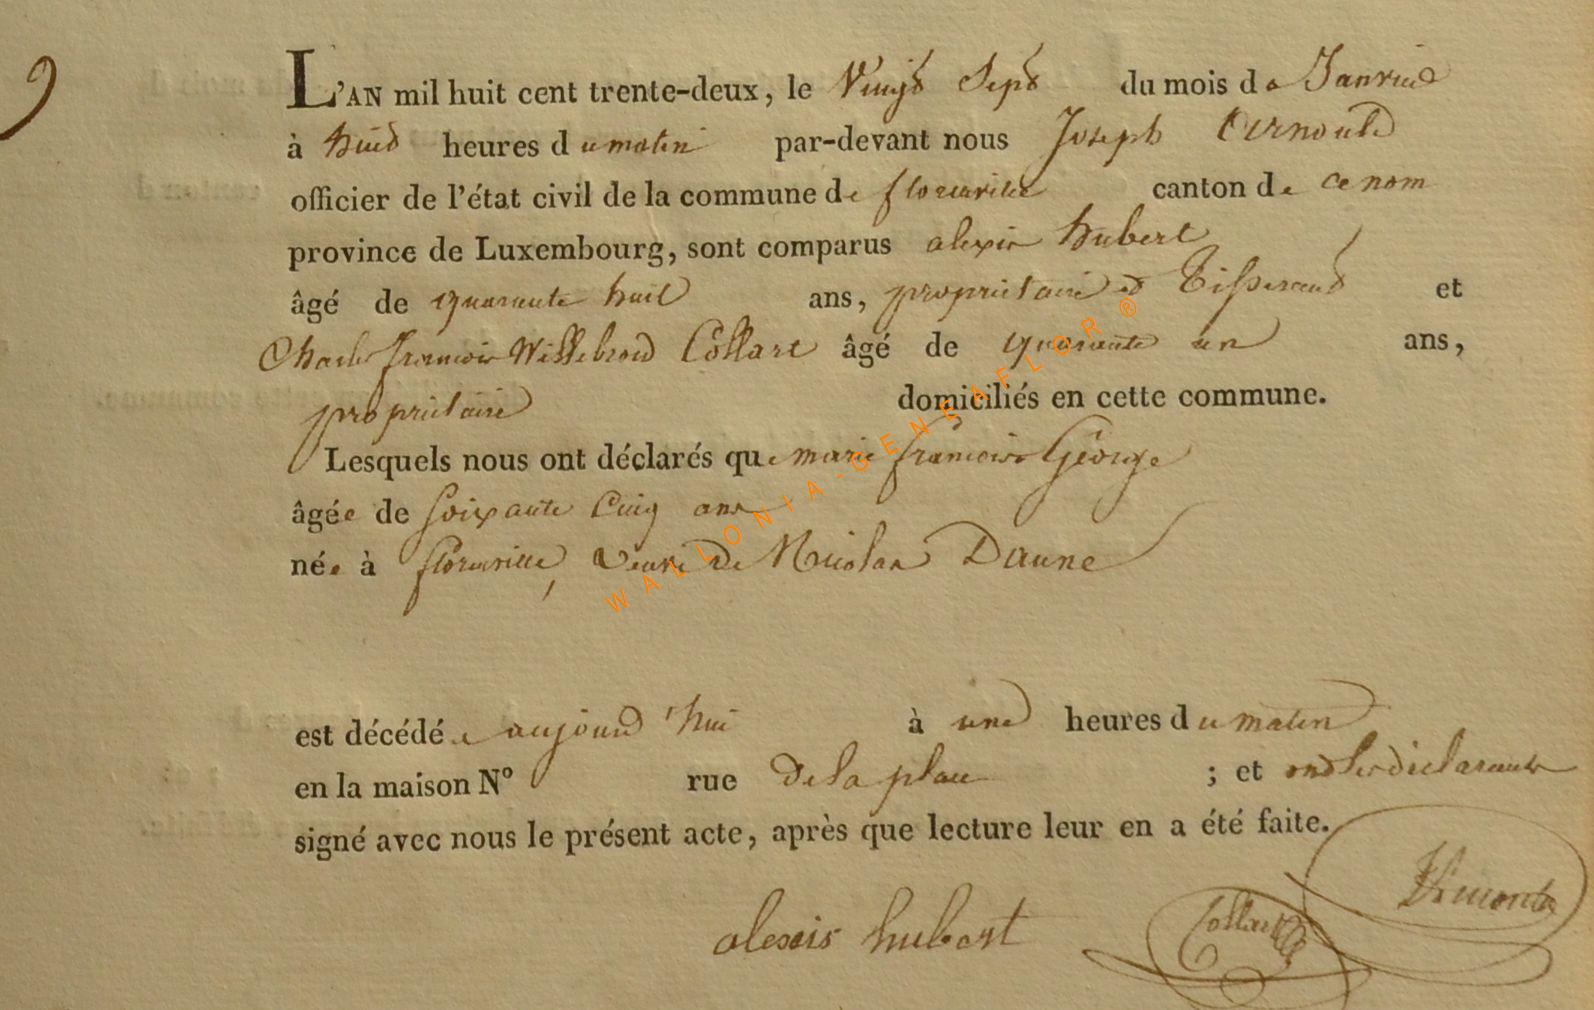 9
L'AN mil huit cent trente-deux, le Vingt Sept du mois de Janvier
à huit heures du matin par-devant nous Joseph Arnould
officier de l'état civil de la commune de florenville canton de ce nom
province de Luxembourg, sont comparus alexis hubert
âgé de quarante huit ans, propriétaire et Tisserand et
Charles françois Willebrord Collart âgé de quarante un ans,
propriétaire domiciliés en cette commune.
Lesquels nous ont déclarés que marie françoise George
âgée de soixante cinq ans
née à florenville, veuve de Nicolas Daune
est décédée aujourd'hui à une heures du matin
en la maison N° rue de la place ; et ont les déclarants
signé avec nous le présent acte, après que lecture leur en a été faite.
alexis hubert Collart
WALLONIA-GENEAFLOR ®